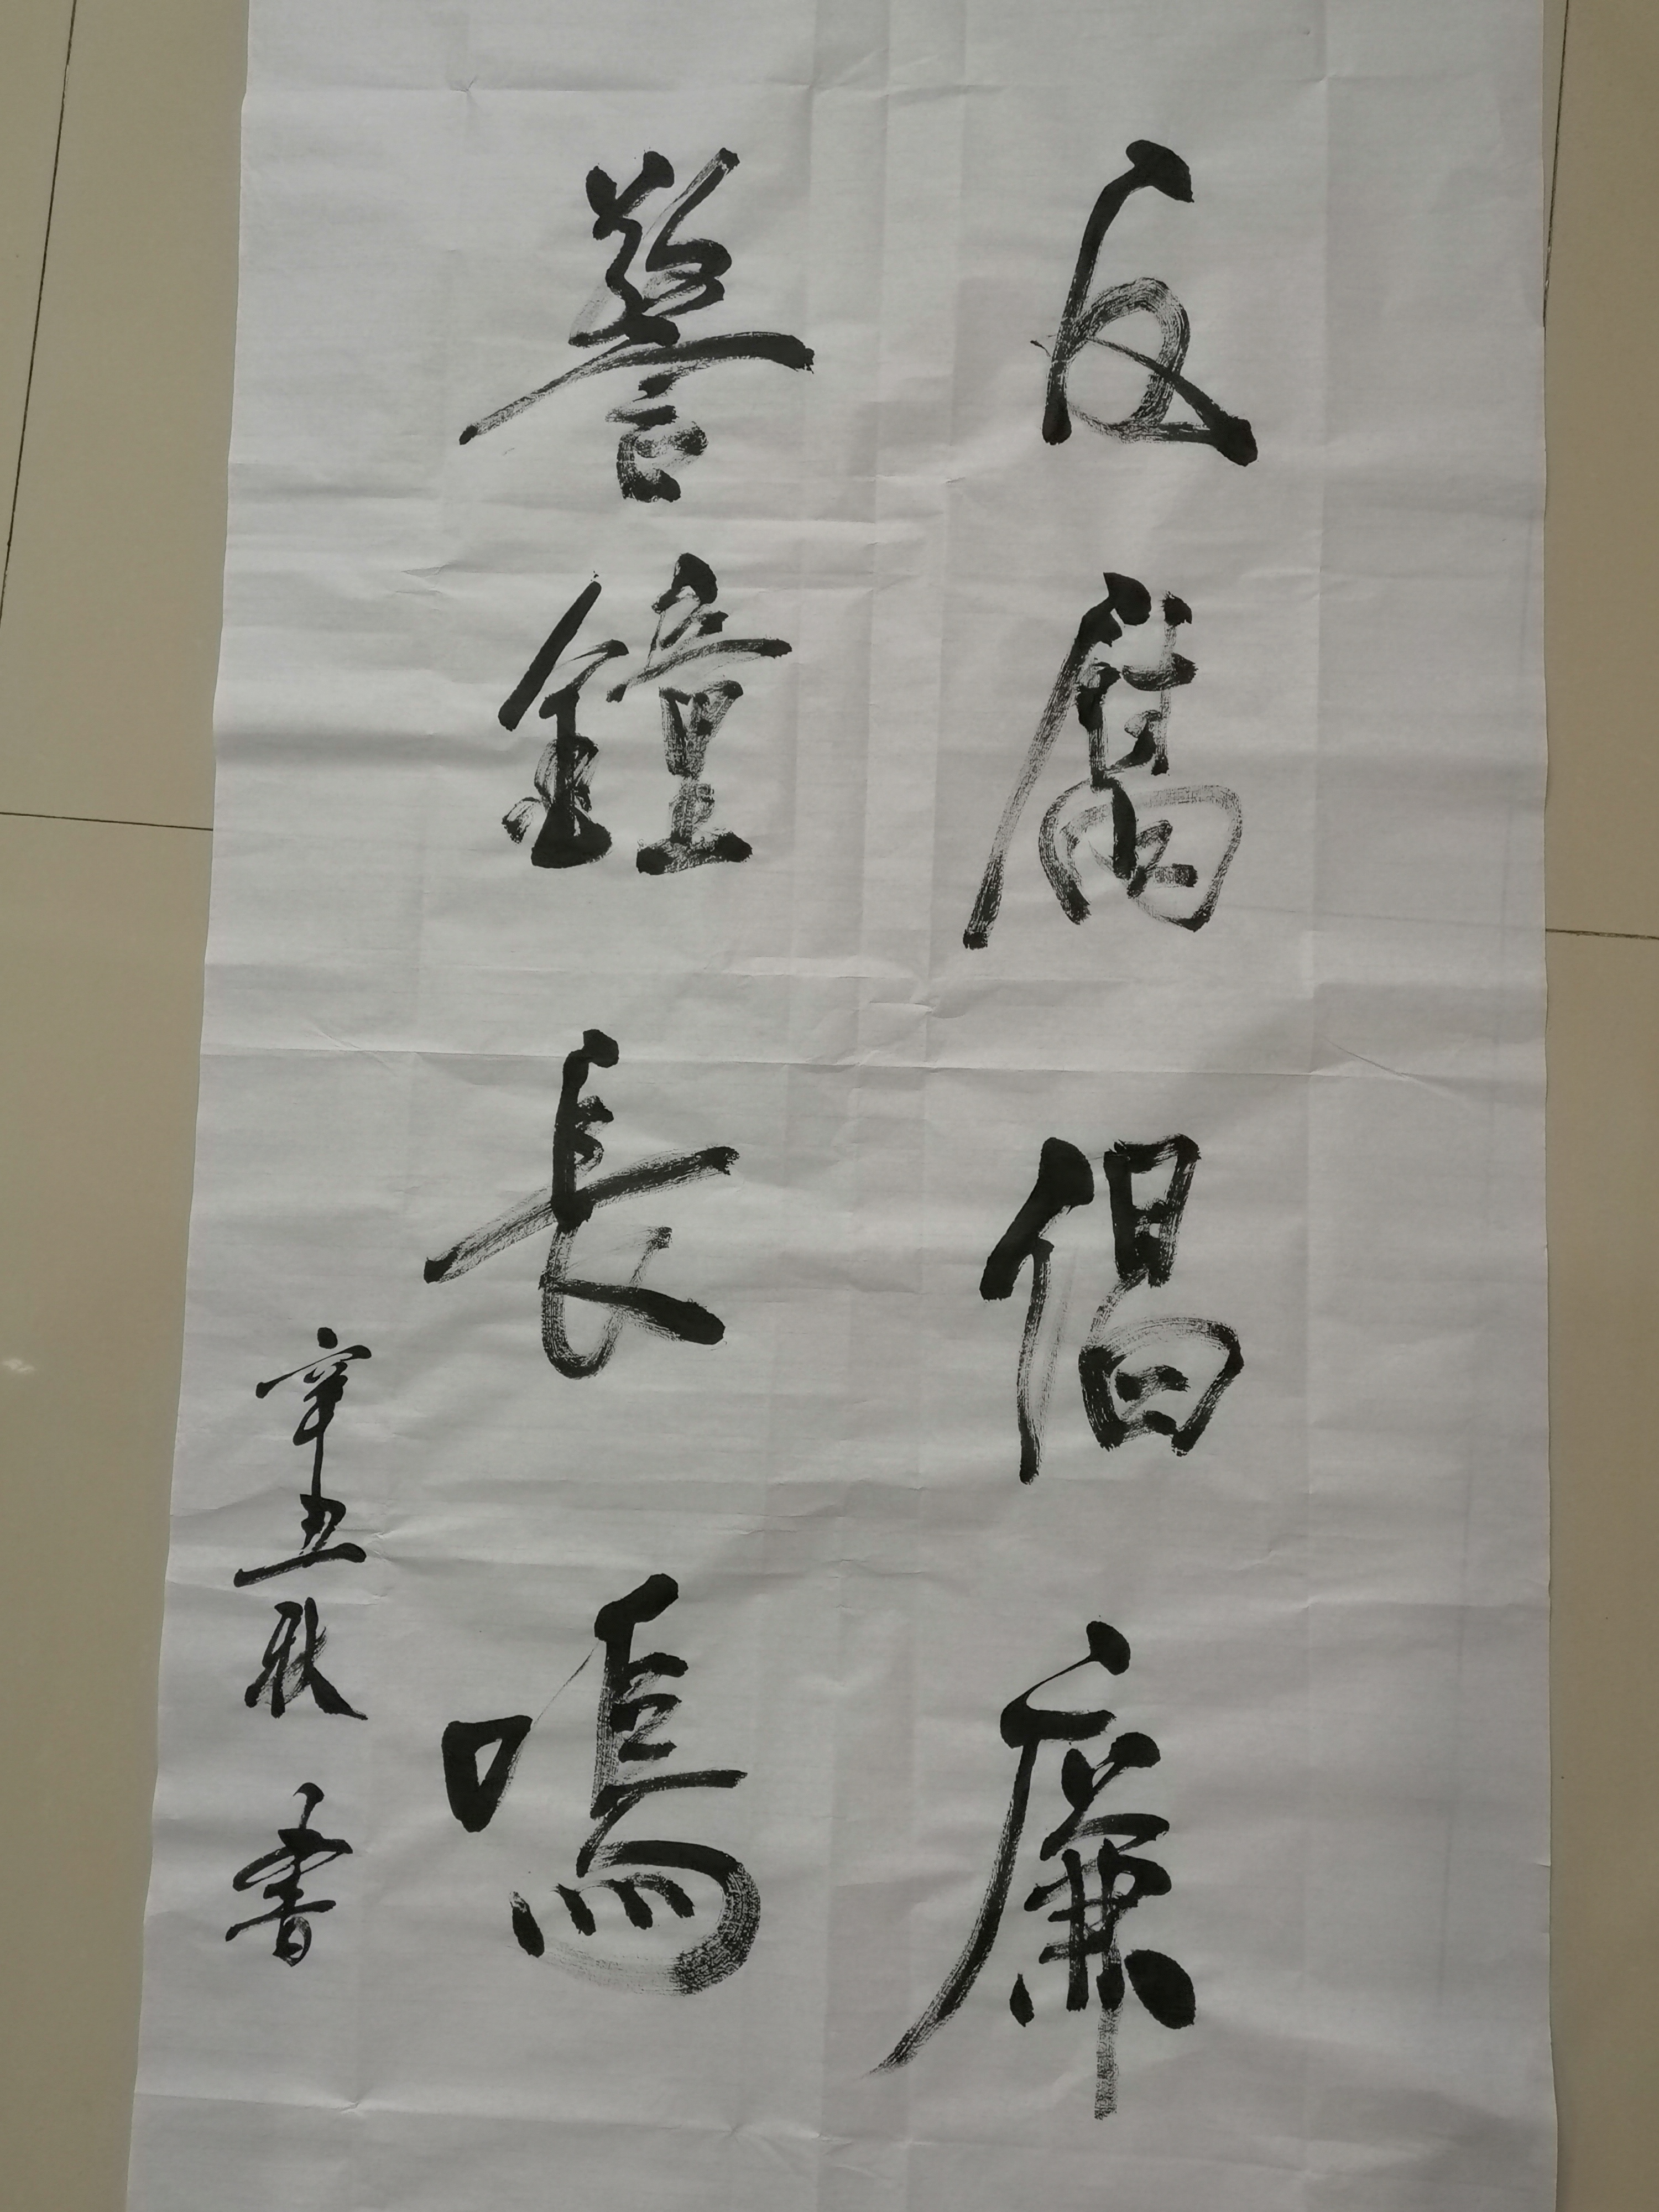 反腐倡廉
警鐘長鳴
辛丑秋 書